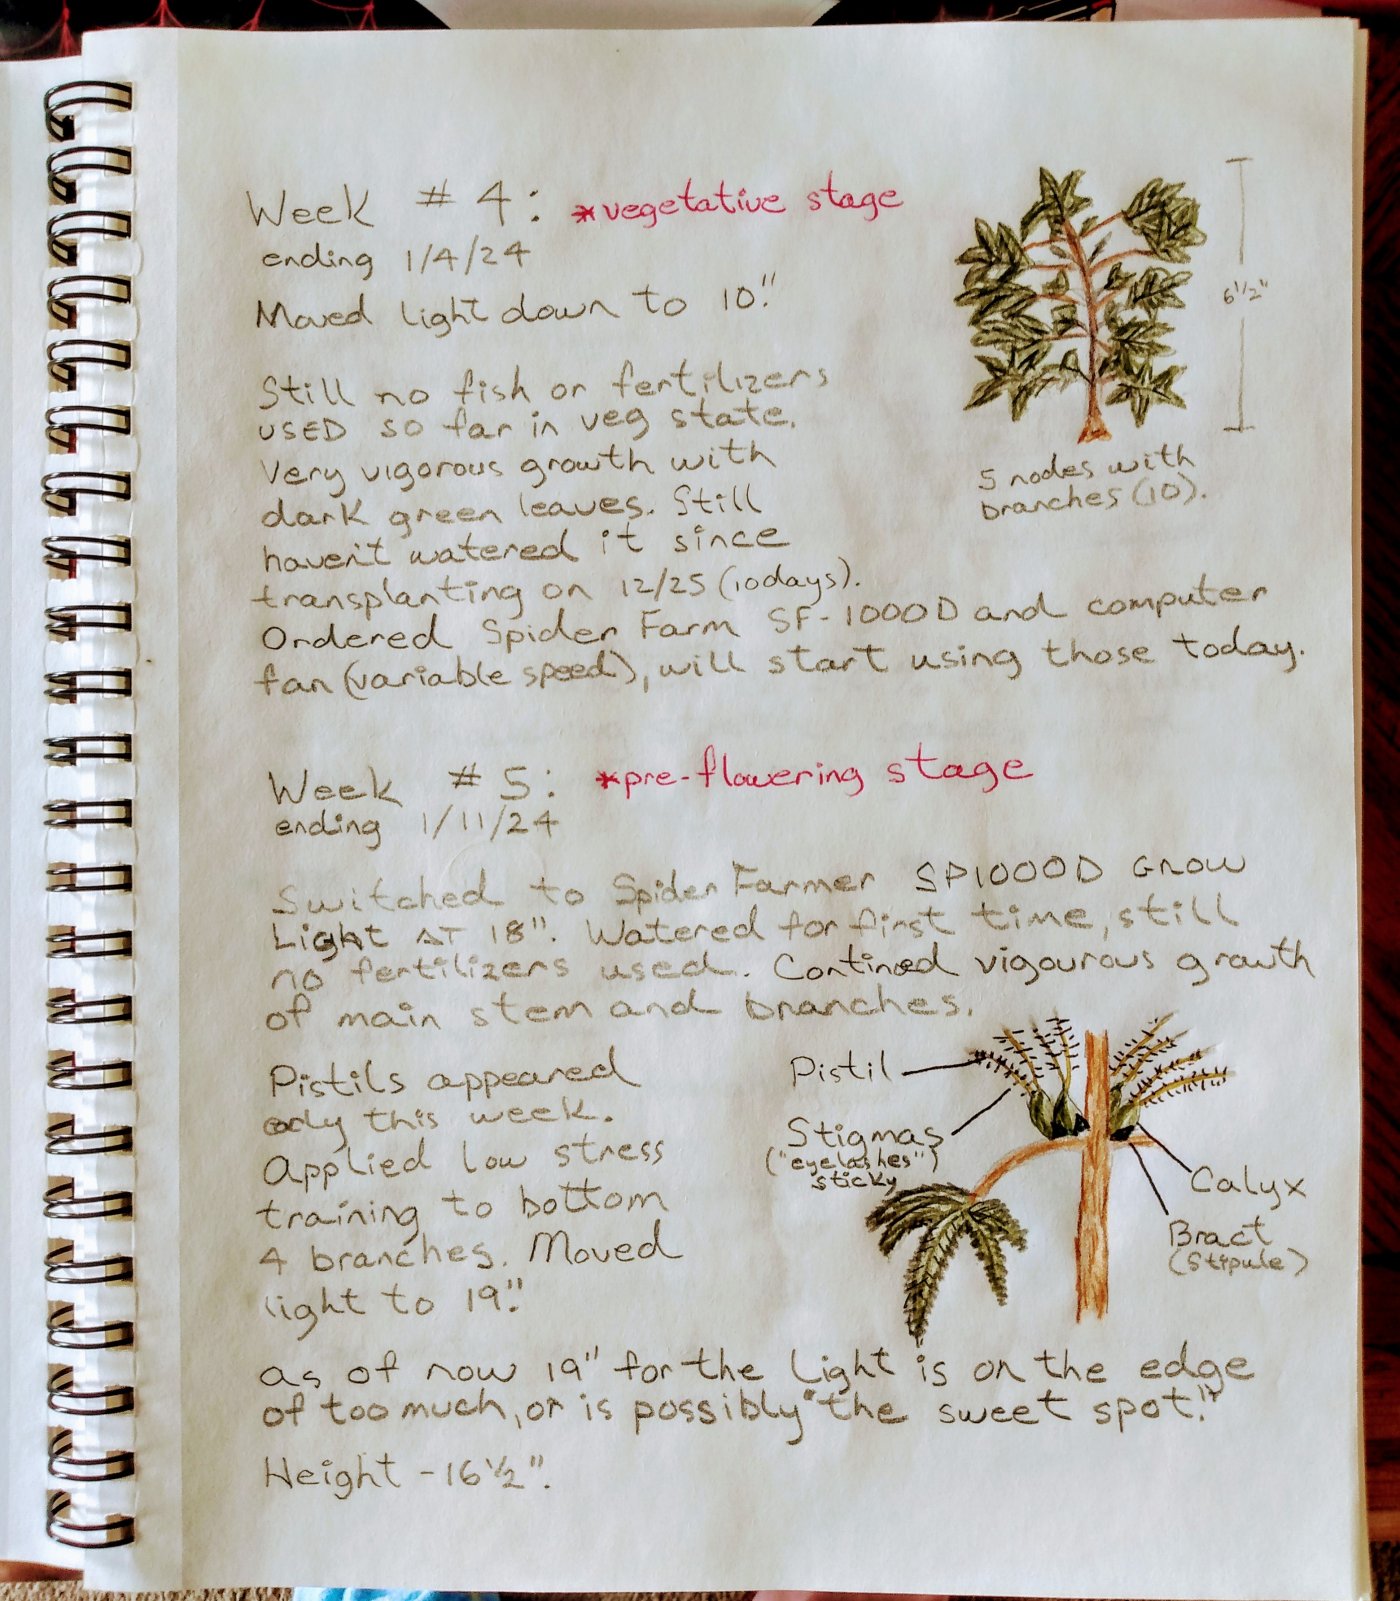 Week # 4: *vegetative stage
ending 1/4/24
Moved light down to 10."
6 1/2"
5 nodes with
branches (10).
Still no fish or fertilizers
USED so far in veg state.
Very vigorous growth with
dark green leaves. Still
haven't watered it since
transplanting on 12/25 (10days).
Ordered Spider Farm SF-1000D and computer
fan (variable speed), will start using those today.
Week # 5: *pre-flowering stage
ending 1/11/24
Switched to Spider Farmer SP1000D GROW
Light AT 18". Watered for first time, still
no fertilizers used. Contined vigourous growth
of main stem and branches.
Pistils appeared
this week.
Applied low stress
training to bottom
4 branches. Moved
light to 19".
Pistil
Stigmas
("eyelashes")
sticky
Calyx
Bract
(Stipule)
as of now 19" for the light is on the edge
of too much, or is possibly "the sweet spot."
Height - 16 1/2".